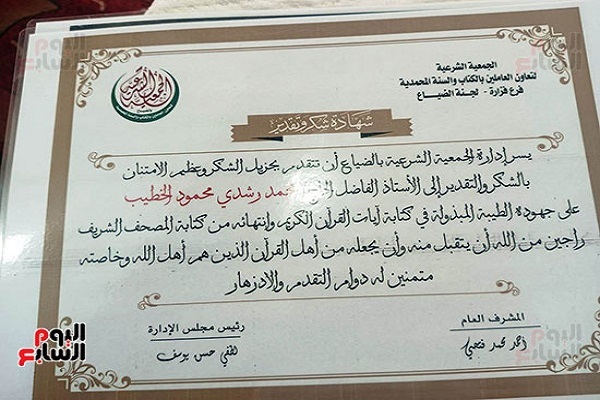 الجمعية الشرعية
لتعاون العاملين بالكتاب والسنة المحمدية
فرع فزارة - لجنة الضياع
الجمعية الشرعية
شهادة شكر وتقدير
يسر إدارة الجمعية الشرعية بالضياع أن تتقدم بجزيل الشكر وعظيم الامتنان
بالشكر والتقدير إلى الأستاذ الفاضل محمد رشدي محمود الخطيب
على جهوده الطيبة المبذولة في كتابة آيات القرآن الكريم وانتهائه من كتابة المصحف الشريف
راجين من الله أن يتقبل منه وأن يجعله من أهل القرآن الذين هم أهل الله وخاصته
متمنين له دوام التقدم والازدهار
المشرف العام
أحمد محمد فتحي
رئيس مجلس الإدارة
لطفي حسن يوسف
اليوم السابع